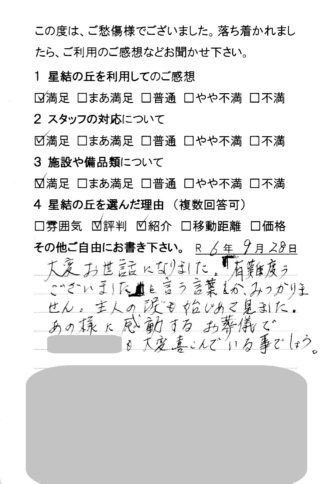 この度は、ご愁傷様でございました。落ち着かれまし
たら、ご利用のご感想などお聞かせ下さい。
1 星結の丘を利用してのご感想
☑満足 □まあ満足 □普通 □やや不満 □不満
2 スタッフの対応について
☑満足 □まあ満足 □普通 □やや不満 □不満
3 施設や備品類について
☑満足 □まあ満足 □普通 □やや不満 □不満
4 星結の丘を選んだ理由（複数回答可）
□雰囲気 ☑評判 ☑紹介 □移動距離 □価格
その他ご自由にお書き下さい。 R 6年 9月 28日
大変お世話になりました。有難度う
ございましたと言う言葉しか、みつかりま
せん。主人の涙も始じめて見ました。
あの様に感動するお葬儀で
も大変喜こんでいる事でしょう。